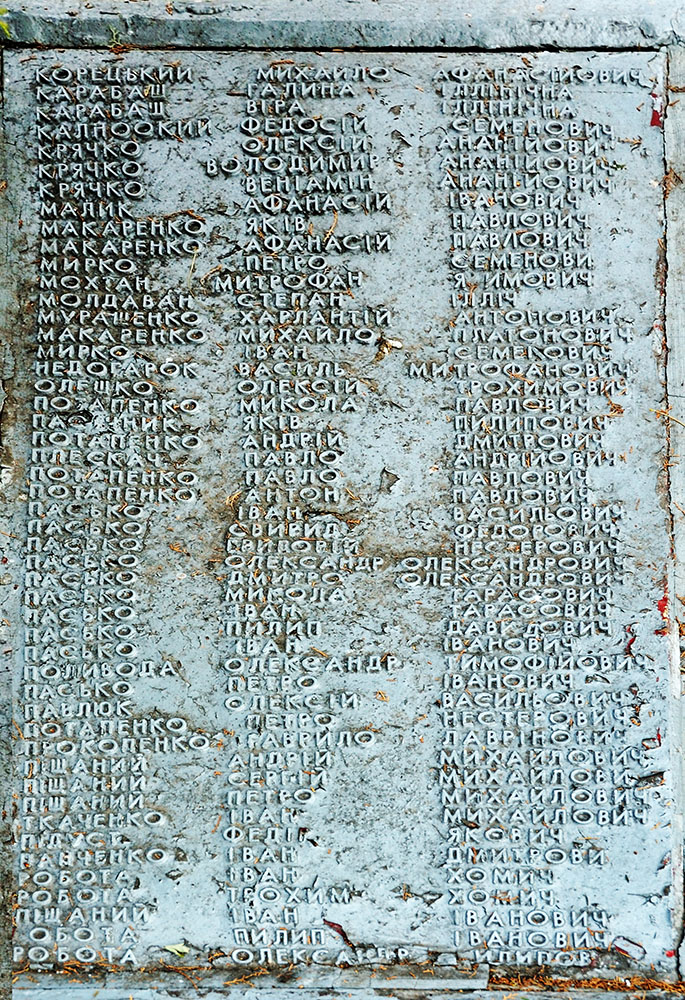 КОРЕЦЬКИЙ МИХАЙЛО АФАНАСІЙОВИЧ
КАРАБАШ ГАЛИНА ІЛЛІНІЧНА
КАРАБАШ ВІРА ІЛЛІНІЧНА
ФЕДОСІЙ СЕМЕНОВИЧ
КРЯЧКО ОЛЕКСІЙ АНАНІЙОВИЧ
КРЯЧКО ВОЛОДИМИР АНАНІЙОВИЧ
КРЯЧКО ВЕНІАМІН АНАНІЙОВИЧ
МАЛИК АФАНАСІЙ ІВАНОВИЧ
МАКАРЕНКО ЯКІВ ПАВЛОВИЧ
МАКАРЕНКО АФАНАСІЙ ПАВЛОВИЧ
МИРКО ПЕТРО СЕМЕНОВИ
МОХТАН МИТРОФАН ЯКИМОВИЧ
МОЛДАВАН СТЕПАН ІЛЛІЧ
МУРАШЕНКО ХАРЛАНТІЙ АНТОНОВИЧ
МАКАРЕНКО МИХАЙЛО ПЛАТОНОВИЧ
МИРКО ІВАН СЕМЕНОВИЧ
НЕДОГАРОК ВАСИЛЬ МИТРОФАНОВИЧ
ОЛЕШКО ОЛЕКСІЙ ТРОХИМОВИЧ
ПОТАПЕНКО МИКОЛА ПАВЛОВИЧ
ПАСІЧНИК ЯКІВ ПИЛИПОВИЧ
ПОТАПЕНКО АНДРІЙ ДМИТРОВИЧ
ПЛЕСКАЧ ПАВЛО АНДРІЙОВИЧ
ПОТАПЕНКО ПАВЛО ПАВЛОВИЧ
ПОТАПЕНКО АНТОН ПАВЛОВИЧ
ПАСЬКО ІВАН ВАСИЛЬОВИЧ
ПАСЬКО СВИРИД ФЕДОРОВИЧ
ПАСЬКО ГРИГОРІЙ НЕСТЕРОВИЧ
ПАСЬКО ОЛЕКСАНДР ОЛЕКСАНДРОВИЧ
ПАСЬКО ДМИТРО ОЛЕКСАНДРОВИЧ
ПАСЬКО МИКОЛА ТАРАСОВИЧ
ПАСЬКО ІВАН ТАРАСОВИЧ
ПАСЬКО ПИЛИП ДАВИДОВИЧ
ПАСЬКО ІВАН ІВАНОВИЧ
ПОЛИВОДА ОЛЕКСАНДР ТИМОФІЙОВИЧ
ПАСЬКО ПЕТРО ІВАНОВИЧ
ПАВЛЮК ОЛЕКСІЙ ВАСИЛЬОВИЧ
ПОТАПЕНКО ПЕТРО НЕСТЕРОВИЧ
ПРОКОПЕНКО ГАВРИЛО ЛАВРІНОВИЧ
ПІЩАНИЙ АНДРІЙ МИХАЙЛОВИЧ
ПІЩАНИЙ СЕРГІЙ МИХАЙЛОВИЧ
ПІЩАНИЙ ПЕТРО МИХАЙЛОВИЧ
ТКАЧЕНКО ІВАН МИХАЙЛОВИЧ
ПІДУСТ ФЕДІР ЯКОВИЧ
ПАНЧЕНКО ІВАН ДМИТРОВИ
РОБОТА ІВАН ХОМИЧ
РОБОТА ТРОХИМ ХОМИЧ
ПІЩАНИЙ ІВАН ІВАНОВИЧ
РОБОТА ПИЛИП ІВАНОВИЧ
РОБОТА ОЛЕКСАНДР